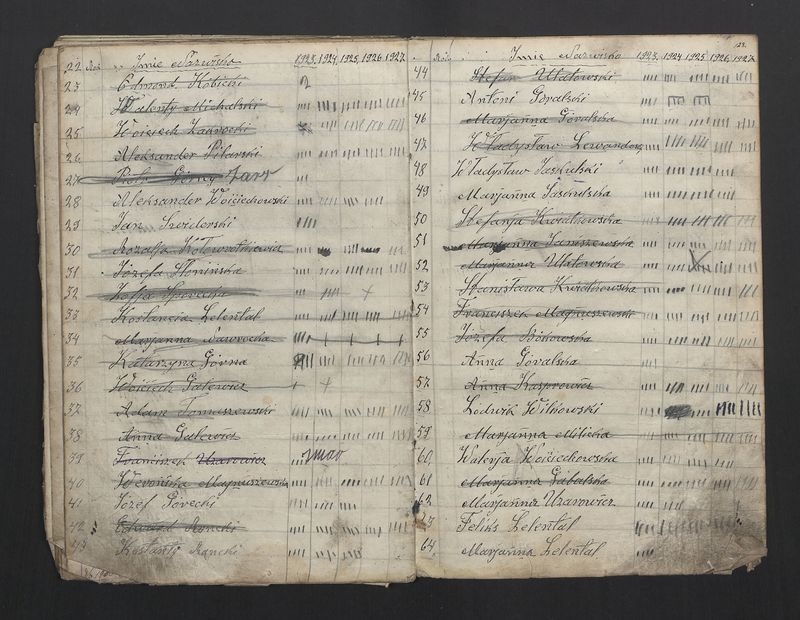 22 Imię Nazwisko 1923 1924 1925 1926 1927
23 Edmond Kobicki
24 Walenty Michalski
25 Wojciech
26 Aleksander Pilarski
27 Piotr Górny
28 Aleksander Wojciechowski
29 Jan Swiderski
30 Rozalja
31 Józefa Słomińska
32 Zofja
33 Kostancia Lelental
34 Marjanna
35 Katarzyna Górna
36 Wojciech Galewicz
37 Adam Tomaszewski
38 Anna Galewicz
39 Franciszek Uzarowicz
40 Weronika Magnuszewska
41 Józef Górecki
42 Edward Rancki
43 Kostanty Rancki
Imię Nazwisko 1923 1924 1925 1926 1927
44 Stefan Ulatowski
45 Antoni Góralski
46 Marjanna Góralska
47 Władysław Lewandowski
48 Władysław Jaskulski
49 Marjanna Jaskulska
50 Stefanja Kwiatkowska
51 Marjanna Janiszewska
52 Marjanna Ulatowska
53 Stanisława Kwiatkowska
54 Franciszek Magnuszewski
55 Józefa
56 Anna Góralska
57 Anna Kasprowicz
58 Ludwik Witkowski
59 Marjanna Milicka
60 Walerja Wojciechowska
61 Marjanna Gabalska
62 Marjanna Uzarowicz
63 Feliks Lelental
64 Marjanna Lelental